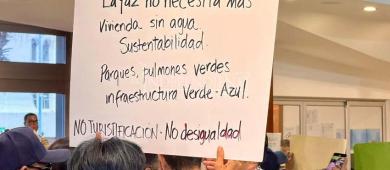 La Paz no necesita más
Vivienda sin agua
Sustentabilidad.
Parques, pulmones verdes
infraestructura Verde-Azul.
NO TURISTIFICACION · No desigualdad